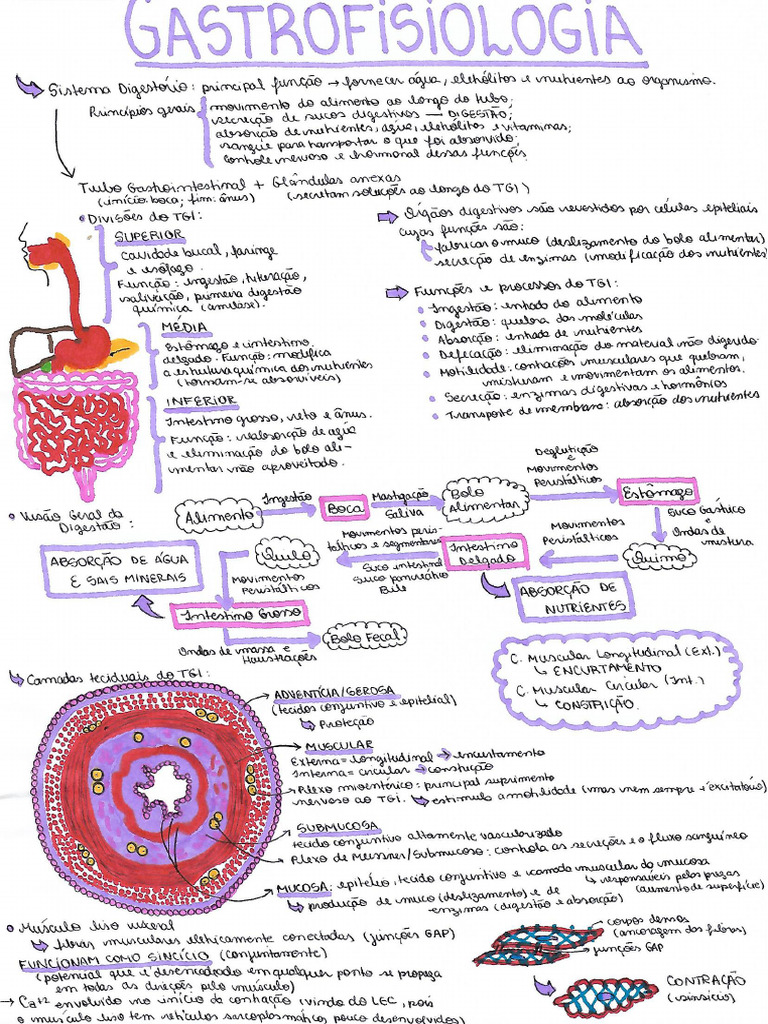 GASTROFISIOLOGIA
Sistema Digestório: principal função → fornecer água, eletrólitos e nutrientes ao organismo.
Princípios gerais
movimento do alimento ao longo do tubo;
secreção de sucos digestivos — DIGESTÃO;
absorção de nutrientes, água, eletrólitos e vitaminas;
sangue para transportar o que foi absorvido;
controle nervoso e hormonal dessas funções.
Tubo Gastrointestinal + Glândulas anexas
(início: boca; fim: ânus) (secretam soluções ao longo do TGI)
• Divisões do TGI:
SUPERIOR
cavidade bucal, faringe
e esôfago.
Função: ingestão, trituração,
salivação, primeira digestão
química (amilase).
MÉDIA
Estômago e intestino
delgado. Função: modifica
a estrutura química dos nutrientes
(tornam-se absorvíveis)
INFERIOR
Intestino grosso, reto e ânus.
Função: reabsorção de água
e eliminação do bolo ali-
mentar não aproveitado.
Órgãos digestivos são revestidos por células epiteliais
cujas funções são:
fabricar o muco (deslizamento do bolo alimentar)
secreção de enzimas (modificação dos nutrientes)
Funções e processos do TGI:
• Ingestão: entrada do alimento
• Digestão: quebra das moléculas
• Absorção: entrada de nutrientes
• Defecação: eliminação do material não digerido
• Motilidade: contrações musculares que quebram,
misturam e movimentam os alimentos.
• Secreção: enzimas digestivas e hormônios
• Transporte de membrana: absorção dos nutrientes
• Visão Geral da
Digestão:
Alimento
Ingestão
Boca
Mastigação
Saliva
Bolo
Alimentar
Deglutição
e
Movimentos
Peristálticos
Estômago
Suco Gástrico
e
Ondas de
mistura
Quimo
Movimentos
Peristálticos
Intestino
Delgado
ABSORÇÃO DE
NUTRIENTES
Movimentos peris-
tálticos e segmentares
Suco intestinal
Suco pancreático
Bile
Quilo
Movimentos
Peristálticos
Intestino Grosso
ABSORÇÃO DE ÁGUA
E SAIS MINERAIS
Ondas de massa e
Haustrações
Bolo Fecal
C. Muscular Longitudinal (Ext.)
↳ ENCURTAMENTO
C. Muscular Circular (Int.)
↳ CONSTRIÇÃO.
Camadas teciduais do TGI:
ADVENTÍCIA/SEROSA
(tecidos conjuntivo e epitelial)
Proteção
MUSCULAR
Externa = longitudinal → encurtamento
Interna = circular → constrição
Plexo mioentérico: principal suprimento
nervoso ao TGI. estimula a motilidade (mas nem sempre é excitatório)
SUBMUCOSA
tecido conjuntivo altamente vascularizado
Plexo de Meissner/Submucoso: controla as secreções e o fluxo sanguíneo
MUCOSA: epitélio, tecido conjuntivo e camada muscular da mucosa
↳ responsáveis pelas pregas
(aumento de superfície)
produção de muco (deslizamento) e de
enzimas (digestão e absorção)
• Músculo liso visceral
fibras musculares eletricamente conectadas (junções GAP)
FUNCIONAM COMO SINCÍCIO (conjuntamente)
(potencial que é desencadeado em qualquer ponto se propaga
em todas as direções pelo músculo)
→ Ca+2 envolvido no início da contração (vindo do LEC, pois
o músculo liso tem retículos sarcoplasmáticos pouco desenvolvidos)
corpos densos
(ancoragem das fibras)
junções GAP
CONTRAÇÃO